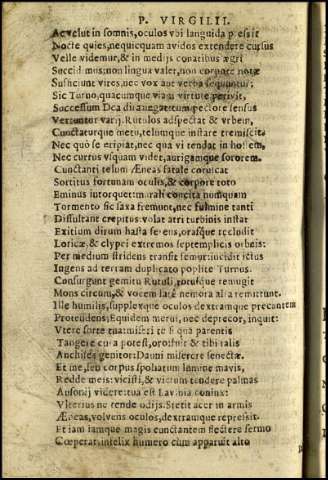 P. VIRGILII.
Ac velut in somnis, oculos vbi languida pressit
Nocte quies, nequicquam avidos extendere cursus
Velle videmur, & in medijs conatibus ægri
Succidimus: non lingua valet, non corpore notæ
Sufficiunt vires, nec vox aut verba sequuntur:
Sic Turno, quacumque viam virtute petivit,
Successum Dea dira negat: tum pectore sensus
Vertuntur varij. Rutulos adspectat & vrbem,
Cunctaturque metu, telumque instare tremiscit:
Nec quò se eripiat, nec qua vi tendat in hostem,
Nec currus vsquam videt, aurigamque sororem.
Cunctanti telum Æneas fatale coruscat
Sortitus fortunam oculis, & corpore toto
Eminus intorquet: murali concita numquam
Tormento sic saxa fremunt, nec fulmine tanti
Dissultant crepitus: volat atri turbinis instar
Exitium dirum hasta ferens, orasque recludit
Loricæ, & clypei extremos septemplicis orbeis:
Per medium stridens transit femur: incidit ictus
Ingens ad terram duplicato poplite Turnus.
Consurgunt gemitu Rutuli, totusque remugit
Mons circum, & vocem latè nemora alta remittunt.
Ille humilis, supplexque oculos dextramque precantem
Protendens; Equidem merui, nec deprecor, inquit:
Vtere sorte tua: miseri te si qua parentis
Tangere cura potest, oro: fuit & tibi talis
Anchises genitor: Dauni miserere senectæ.
Et me, seu corpus spoliatum lumine mavis,
Redde meis: vicisti, & victum tendere palmas
Ausonij videre: tua est Lavinia coniux:
Vlterius ne tende odijs. Stetit acer in armis
Æneas, volvens oculos, dextramque repressit.
Et iam iamque magis cunctantem flectere sermo
Cœperat, infelix humero cum apparuit alto